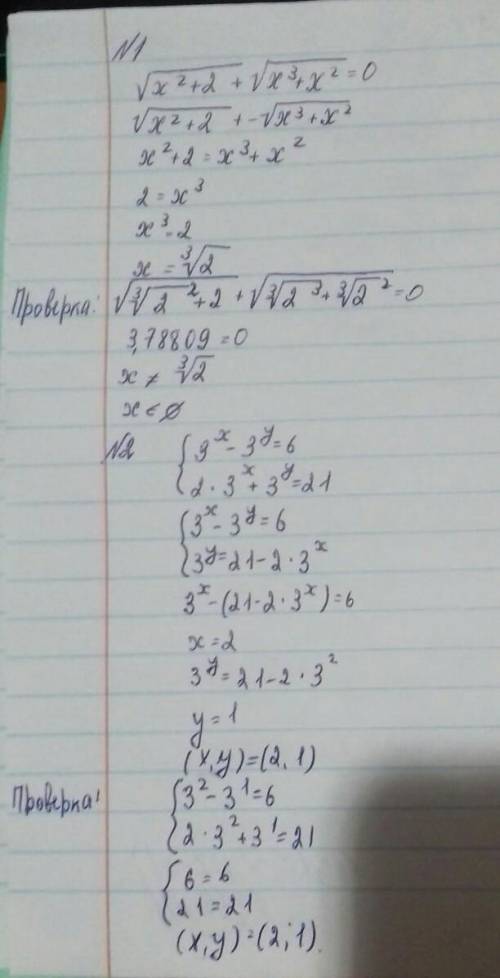 N1
√(x²+2) + √(x³+x²) = 0
√(x²+2) + -√(x³+x²)
x²+2 = x³+x²
2 = x³
x³ = 2
x = ∛2
Проверка: √(∛2² + 2) + √(∛2³ + ∛2²) = 0
3,78809 = 0
x ≠ ∛2
x < ∅
N2 { 3ˣ - 3ʸ = 6
2 · 3ˣ + 3ʸ = 21
{ 3ˣ - 3ʸ = 6
3ʸ = 21 - 2 · 3ˣ
3ˣ - (21 - 2 · 3ˣ) = 6
x = 2
3ʸ = 21 - 2 · 3²
y = 1
(x, y) = (2, 1)
Проверка: { 3² - 3¹ = 6
2 · 3² + 3¹ = 21
{ 6 = 6
21 = 21
(x, y) = (2; 1).